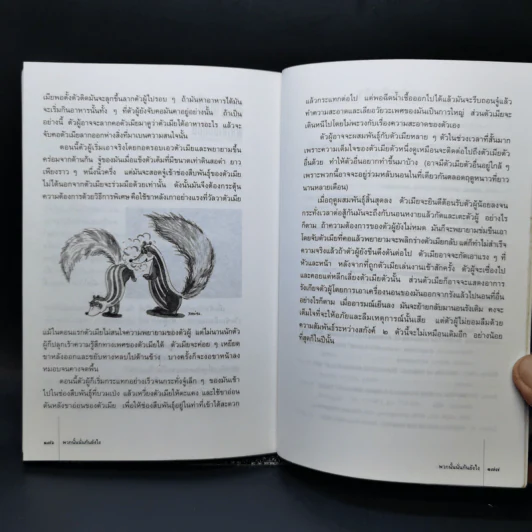 เมียพอตั้งตัวติดมันจะลุกขึ้นลากตัวผู้ไปรอบ ๆ ถ้ามันหาอาหารได้มัน
จะเริ่มกินอาหารนั้นทั้ง ๆ ที่ตัวผู้ยังจับคอมันคาอยู่อย่างนั้น ถ้าเป็น
อย่างนี้ ตัวผู้อาจจะลากคอตัวเมียมาดูว่าตัวเมียได้อาหารอะไร แล้วจะ
จับคอตัวเมียลากออกห่างสิ่งที่มาเบนความสนใจนั้น
ตอนนี้ตัวผู้เริ่มเอาจริงโดยกอดรอบเอวตัวเมียและพยายามขึ้น
คร่อมจากด้านก้น
เพียงราว ๆ หนึ่งนิ้วครึ่ง
ไม่ได้นอกจากตัวเมียจะร่วมมือด้วยเท่านั้น ดังนั้นมันจึงต้องกระตุ้น
ความต้องการด้วยวิธีการพิเศษ
แม้ในตอนแรกตัวเมียไม่สนใจความพยายามของตัวผู้ แต่ไม่นานนักตัว
ผู้ก็ปลุกเร้าความรู้สึกทางเพศของตัวเมียได้ ตัวเมียจะค่อย ๆ เหยียด
ขาหลังออกและขยับหางหลบไปด้านข้าง บางครั้งก็จะงอขาหน้าลง
หมอบจนคางจดพื้น
ตอนนี้ตัวผู้ก็เริ่มกระแทกอย่างเร็วจนกระทั่งจู๋เล็ก ๆ ของมันเข้า
ไปในช่องสืบพันธุ์ที่บวมเป่ง
ดันหลังขาอ่อนของตัวเมีย เพื่อให้ช่องสืบพันธุ์อยู่ในท่าที่เข้าได้สะดวก
๑๗๖ พวกนั้นมันกันยังไง
แล้วกระแทกต่อไป แต่พอฉีดน้ำเชื้อออกไปได้แล้วมันจะรีบถอนจู๋แล้ว
ทำความสะอาดและเลียอวัยวะเพศของมันเป็นการใหญ่ ส่วนตัวเมียจะ
เดินหนีไปโดยไม่พะวงกับเรื่องของความสะอาดของตัวเอง
ตัวผู้อาจจะผสมพันธุ์กับตัวเมียหลาย ๆ ตัวในช่วงเวลาที่สั้นมาก
อื่นด้วย ทำให้ตัวอื่นอยากทำขึ้นมาบ้าง (อาจมีตัวเมียตัวอื่นอยู่ใกล้ ๆ
เพราะพวกนี้อาจจะอยู่ร่วมหลับนอนในที่เดียวกันตลอดฤดูหนาวที่ยาว
นานหลายเดือน)
เมื่อฤดูผสมพันธุ์สิ้นสุดลง
ก็ตาม ถ้าความต้องการของตัวผู้ยังไม่หมด มันก็จะพยายามข่มขืนเอา
หัวและหน้า หลังจากที่ถูกตัวเมียเล่นงานเข้าสักครั้ง ตัวผู้จะเซื่องไป
และคอยแต่หลีกเลี่ยงตัวเมียตัวนั้น ส่วนตัวเมียก็อาจจะแสดงอาการ
รังเกียจตัวผู้โดยการเอาเครื่องนอนของมันออกจากรังแล้วไปนอนที่อื่น
อย่างไรก็ตาม เมื่ออารมณ์เย็นลง มันจะย้ายกลับมานอนรังเดิม คงจะ
เต็มใจที่จะให้อภัยและลืมเหตุการณ์นั้นเสีย แต่ตัวผู้ไม่ยอมลืมด้วย
ความสัมพันธ์ระหว่างสกังค์ ๒ ตัวนี้จะไม่เหมือนเดิมอีก อย่างน้อย
ที่สุดก็ในปีนั้น
พวกนั้นมันกันยังไง ๑๗๗